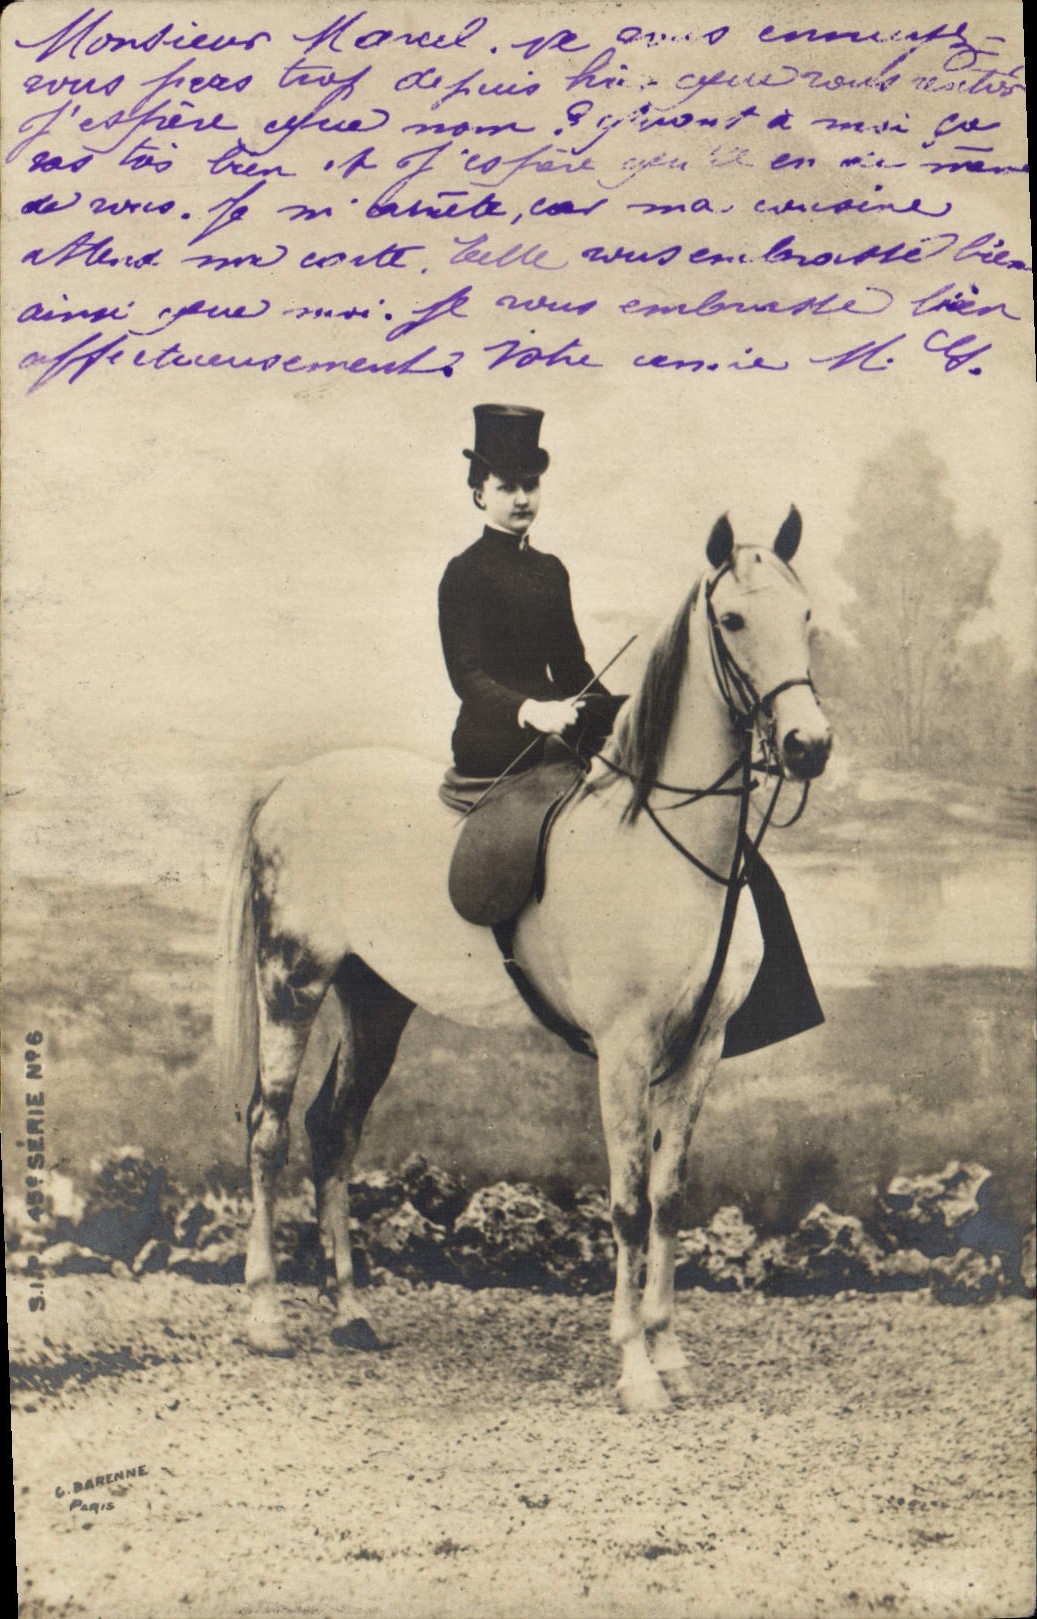 Monsieur Marcel. ne vous ennuyez-
vous pas trop depuis hier que vous rentés
J'espère que non ? quant à moi ça
vas très bien et J'espère qu'il en ai même
de vous. Je m'arrête, car ma cousine
attend ma carte. Celle vous embrasse bien
ainsi que moi. Je vous embrasse bien
affectueusement. Votre amie M. G.
S.I.P. 45e SÉRIE No 6
C. DARENNE
PARIS